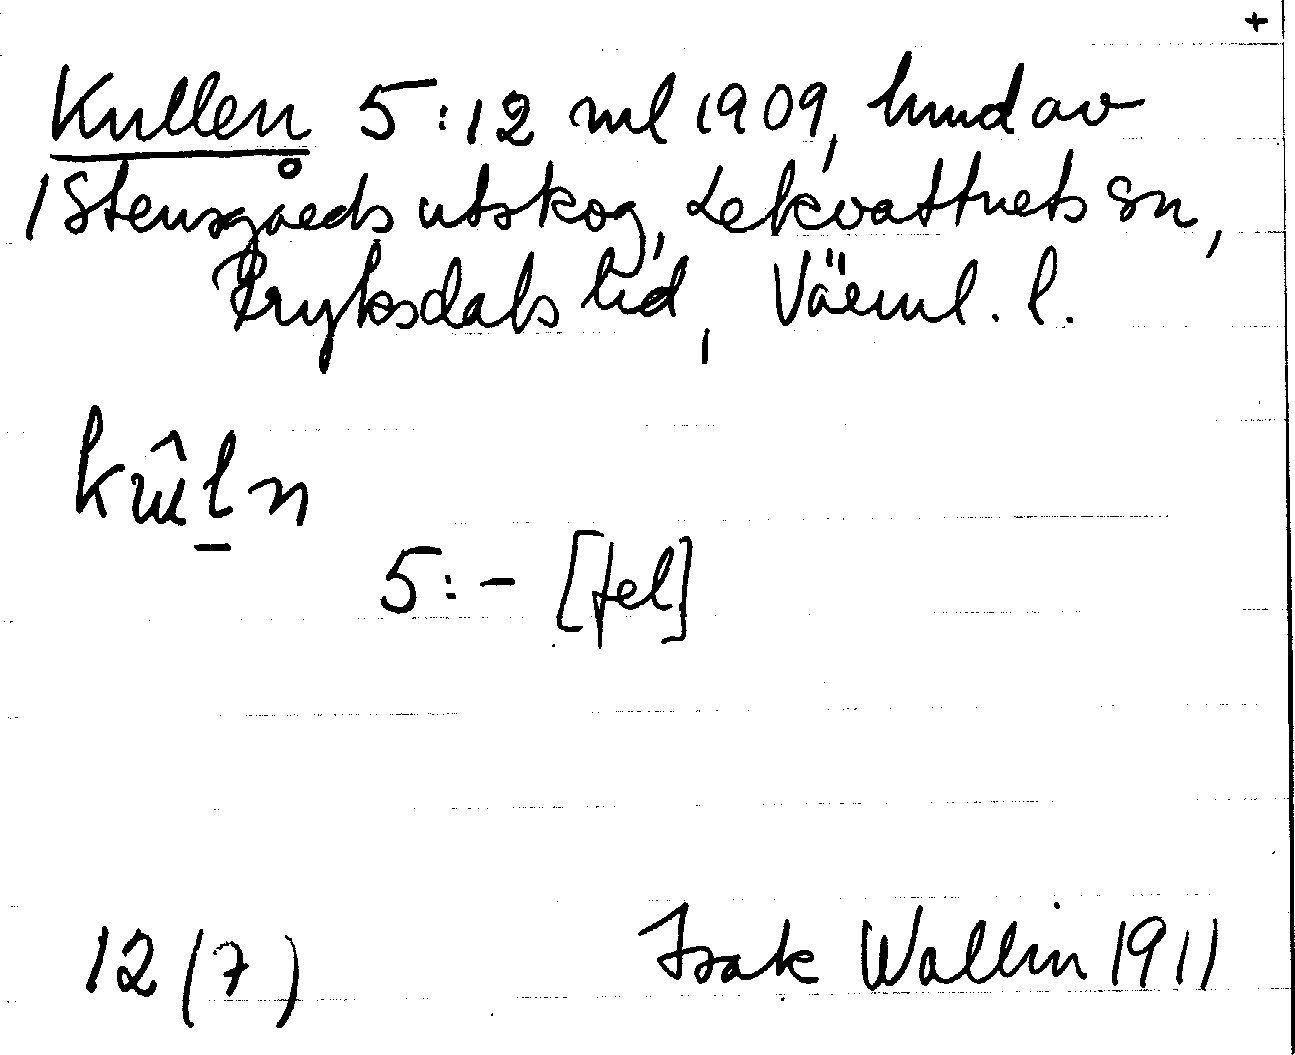 +
Kullen 5:12 ml 1909, hmd av
1 Stensgårds utskog, Lekvattnets sn,
Fryksdals hd, Värml. l.
5:- [fel]
12 (7) Isak Wallin 1911